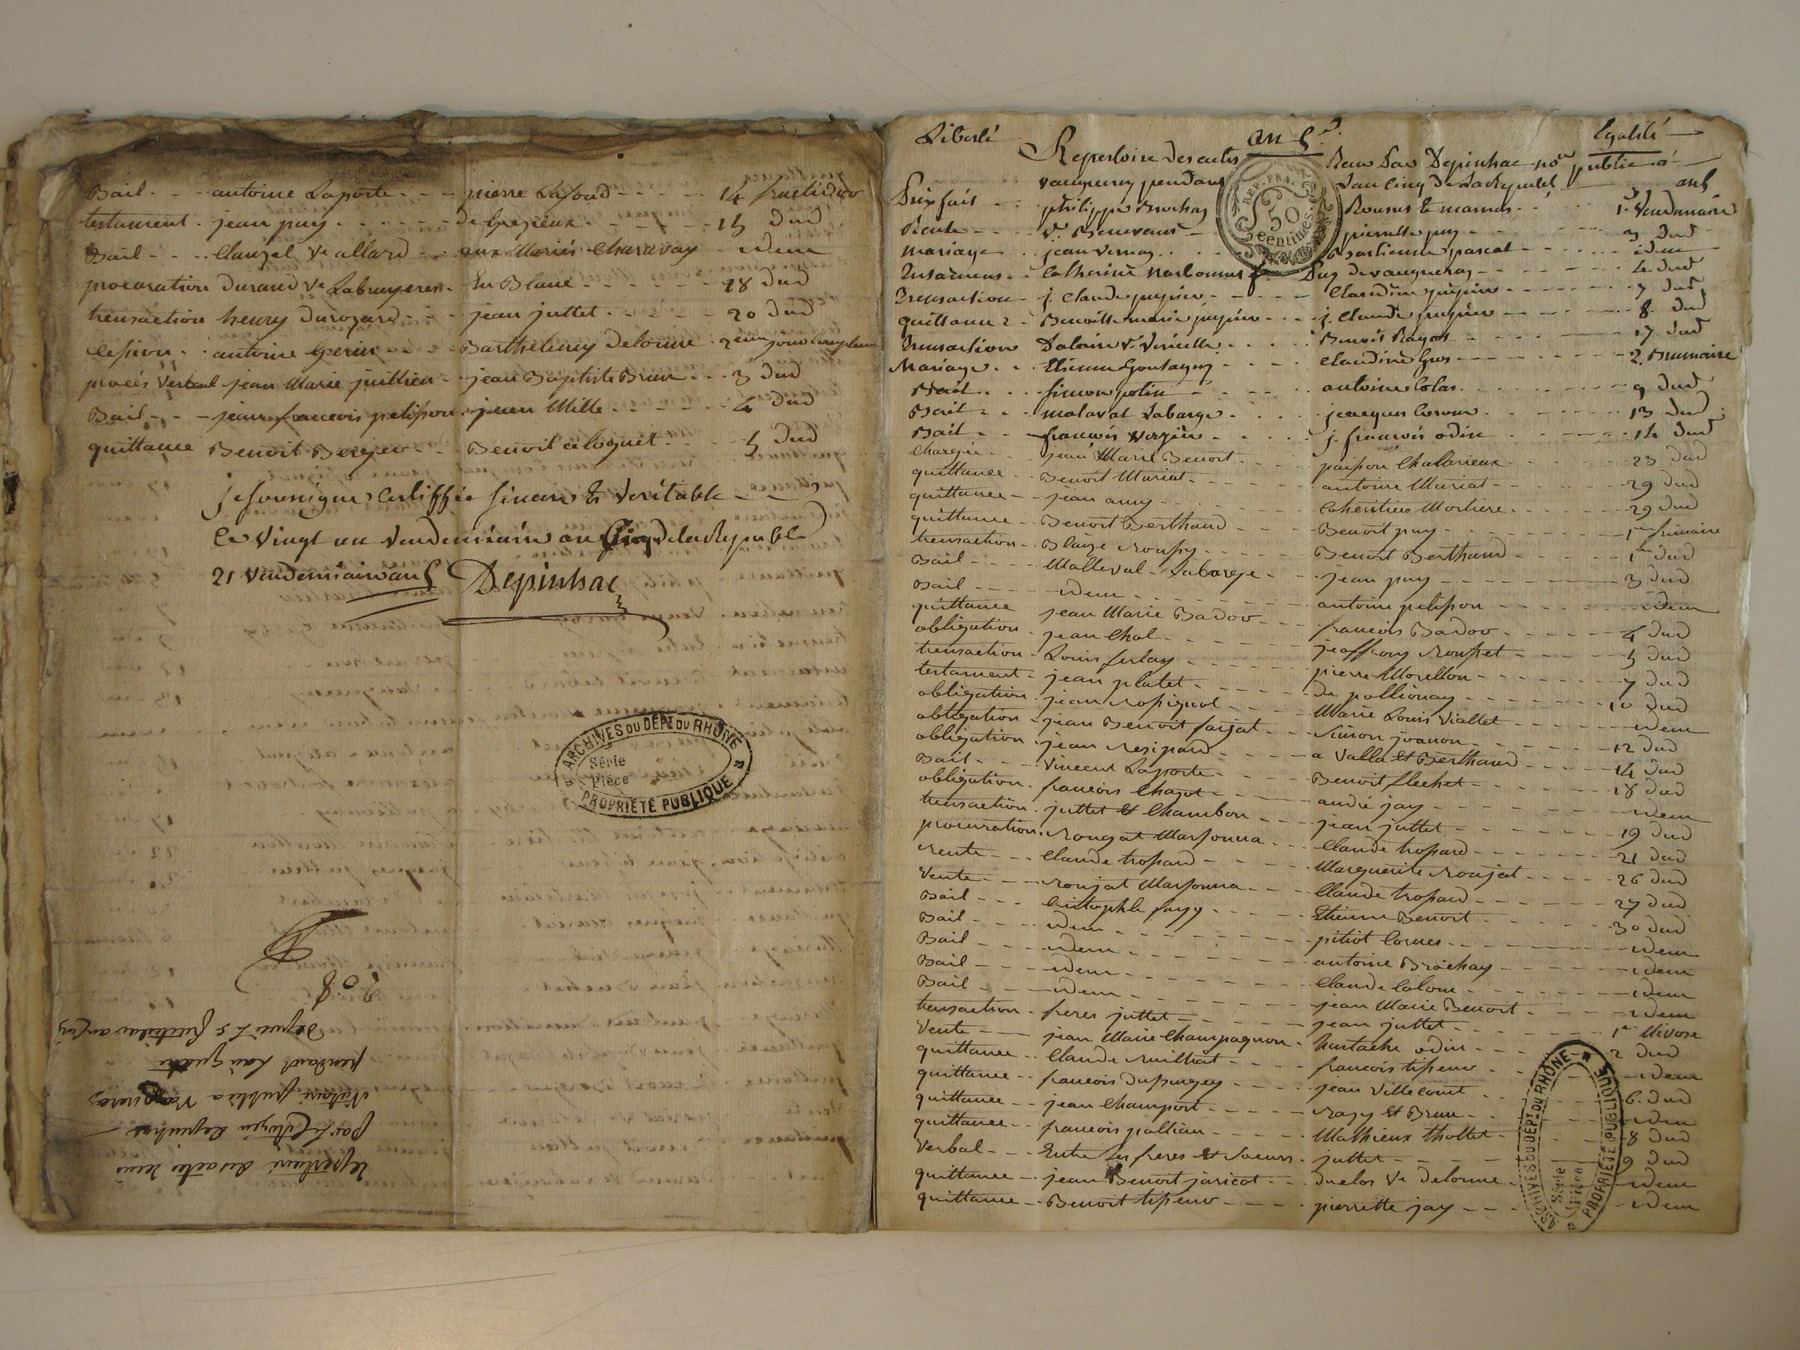 Bail - - antoine Laporte - - - pierre Lafond - - - - 14 fructidor
testament - jean puy - - - - - de Grezieux - - - - - 15 dud
Bail - - - Clauzel Ve allard - - aux Mariés Charavay - idem
procuration Durand Ve Labruyeres - En Blanc - - - - - 18 dud
transaction henry Durozard - - - jean juttet - - - - 20 dud
Cession - antoine Gerin - - - Barthelemy Delorme - 2eme jour Complem
procés Verbal - jean Marie juillien - jean Baptiste Brun - - 3 dud
Bail - - - jean francois pelisson - jean Mille - - - - - 4 dud
quittance Benoit Bergeo - - Benoit - - - - 5 dud
je soussigne Certiffie sincere & Veritable - -
Ce Vingt un Vendemiaire an Cinq de la Republ
21 Vendemiaire an 5 Depinhac
ARCHIVES DU DÉPT DU RHÔNE
Série
Pièce
PROPRIÉTÉ PUBLIQUE
Repertoire des actes recus
par le Citoyen Depinhac
Notaire public a Vaugneray
pendant Lan quatre
208
Liberté an 5e Egalité
Repertoire des actes Recus par Depinhac nore public a
vaugneray pendant Lan Cinq de La Republ
REP. FRA. 50 centimes
an 5
Prix fait - - philippe Brochay Rousset & mamas - - 1er Vendemiaire
Vente - - - pierrette puy - - - 3 dud
mariage - - jean Vernay - - - Bastienne pascal - - - idem
Catherine Narbonne Puy de vaugneray - - - 4 dud
Transaction - j. Claude pupier - - - - Claudine pupier - - - - 7 dud
quittance - Benoitte marie pupier - - - j. Claude pupier - - - - 8 dud
Transaction - - - Benoit Ragot - - - 17 dud
Mariage - - Etienne Goutagny - - - Claudine Gros - - - - 2 Brumaire
Bail - - - Simon potin - - - - antoine Colas - - - - 9 dud
Bail - - - malaval Labarge - - - jacques - - - - 13 dud
Bail - - francois Vergier - - - j. francois odin - - - - 14 dud
jean Marie Benoit - - - Chalarieux - - - 23 dud
quittance - - Benoit Muriat - - - antoine Muriat - - - 29 dud
quittance - - jean amy - - - Morliere - - - 29 dud
quittance - Benoit Berthaud - - - Benoit puy - - - 1er frimaire
transaction - Blaize - - - Benoit Berthaud - - - 1er dud
Bail - - - Malleval - Labarge - - jean puy - - - - 3 dud
Bail - - - idem - - - antoine pelisson - - - idem
quittance jean Marie Badoo - - - francois Badoo - - - 4 dud
obligation - jean Chol - - - jeoffroy - - - 5 dud
transaction - Louis ferlay - - - pierre Morellon - - - 7 dud
testament - jean platet - - - - de pollionay - - - 10 dud
obligation - jean Rossignol - - - Marie Louis Viallet - - - idem
obligation - jean Benoit farjat - - Simon joanon - - - 12 dud
obligation - jean - - - a Valla et Berthaud - - - 14 dud
Bail - - - Vincent Laporte - - - Benoit flechet - - - 18 dud
obligation - francois Chazot - - - andré jay - - - idem
transaction - juttet & Chambon - - - jean juttet - - - 19 dud
procuration - Roujat - - - Claude tropard - - - 21 dud
Vente - - - Claude tropard - - - Marguerite Roujat - - - 26 dud
Vente - - Roujat - - - Claude tropard - - - 27 dud
Bail - - - fayy - - - Etienne Benoit - - - 30 dud
Bail - - - idem - - - pitiot - - - idem
Bail - - - idem - - - antoine Brochay - - - idem
Bail - - - idem - - - Claude - - - idem
Bail - - - idem - - - jean Marie Benoit - - - idem
transaction - freres juttet - - - jean juttet - - - 1er Nivose
Vente - - jean Marie Champagnon - Eustache odin - - - 2 dud
quittance - Claude - - - francois tisseur - - - idem
quittance - - francois Dupurgey - - jean Villecourt - - 6 dud
quittance - - jean Champort - - - Razy et Brun - - - idem
quittance - - francois pallian - - - Mathieux thollet - - 8 dud
Verbal - - - Entre Les freres et Soeurs - juttet - - - 9 dud
quittance - - jean Benoit jaricot - - duclos Ve delorme - - idem
quittance - - Benoit tisseur - - - pierrette jay - - - idem
ARCHIVES DU DÉPT DU RHÔNE
Série
Pièce
PROPRIÉTÉ PUBLIQUE